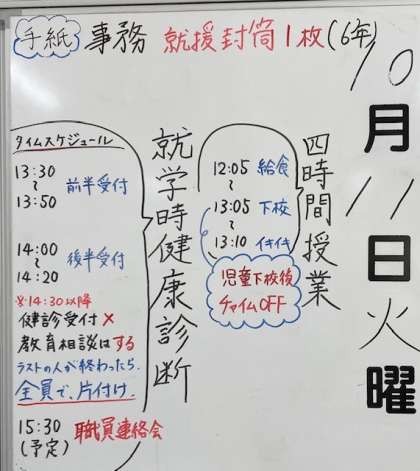 手紙 事務 就援封筒1枚(6年)
10月11日火曜
四時間授業
12:05 給食
〜
13:05 下校
〜
13:10 イキイキ
児童下校後
チャイムOFF
就学時健康診断
タイムスケジュール
13:30
〜 前半受付
13:50
14:00
〜 後半受付
14:20
※14:30以降
健診受付×
教育相談はする
ラストの人が終わったら、
全員で、片付け。
15:30 職員連絡会
(予定)